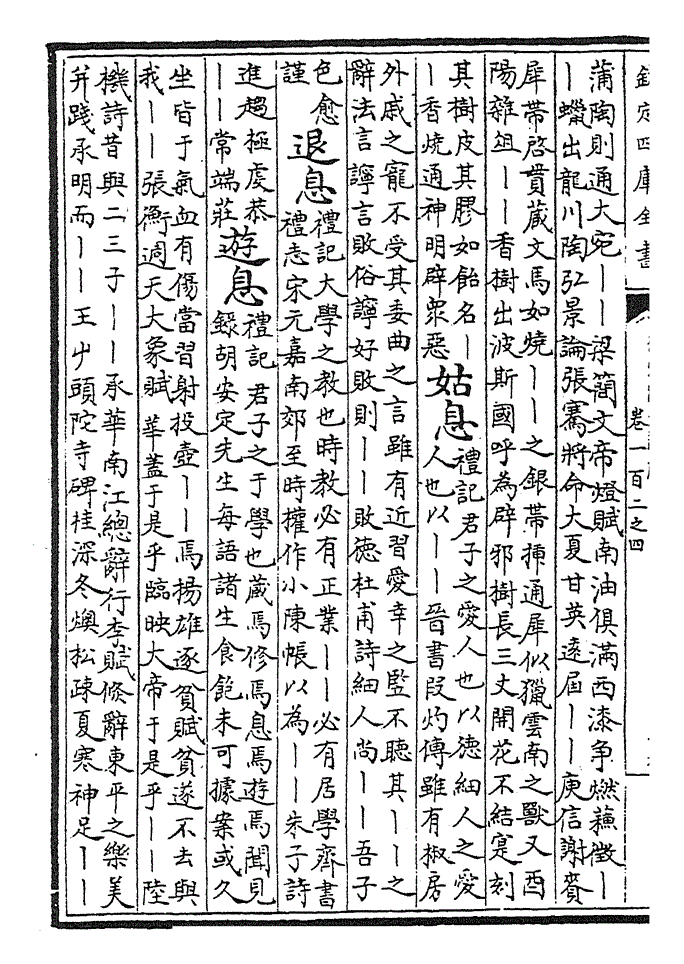 欽定四庫全書
卷一百二之四
蒲陶則通大宛丨丨梁簡文帝燈賦南油俱滿西漆争燃蘓徴丨
丨蠟出龍川陶弘景論張騫將命大夏甘英逺屆丨丨庾信謝賚
犀帶啓貫蔵文馬如燒丨丨之銀帶揷通犀似獵雲南之獸又酉
陽雜俎丨丨香樹出波斯國呼為辟邪樹長三丈開花不結寔刻
其樹皮其膠如飴名丨
丨香燒通神明辟衆惡
姑息
禮記君子之愛人也以德細人之愛
人也以丨丨晉書段灼傳雖有椒房
外戚之寵不受其委曲之言雖有近習愛幸之監不聽其丨丨之
辭法言譐言敗俗譐好敗則丨丨敗德杜甫詩細人尚丨丨吾子
色愈
謹
退息
禮記大學之教也時教必有正業丨丨必有居學齊書
禮志宋元嘉南郊至時權作小陳帳以為丨丨朱子詩
進趨極虔恭
丨丨常端莊
遊息
禮記君子之于學也蔵焉修焉息焉遊焉聞見
錄胡安定先生每語諸生食飽未可據案或久
坐皆于氣血有傷當習射投壺丨丨焉揚雄逐貧賦貧遂不去與
我丨丨張衡週天大象賦華葢于是乎臨映大帝于是乎丨丨陸
機詩昔與二三子丨丨承華南江總辭行李賦修辭東平之樂美
并踐承明而丨丨王屮頭陀寺碑桂深冬燠松疎夏寒神足丨丨